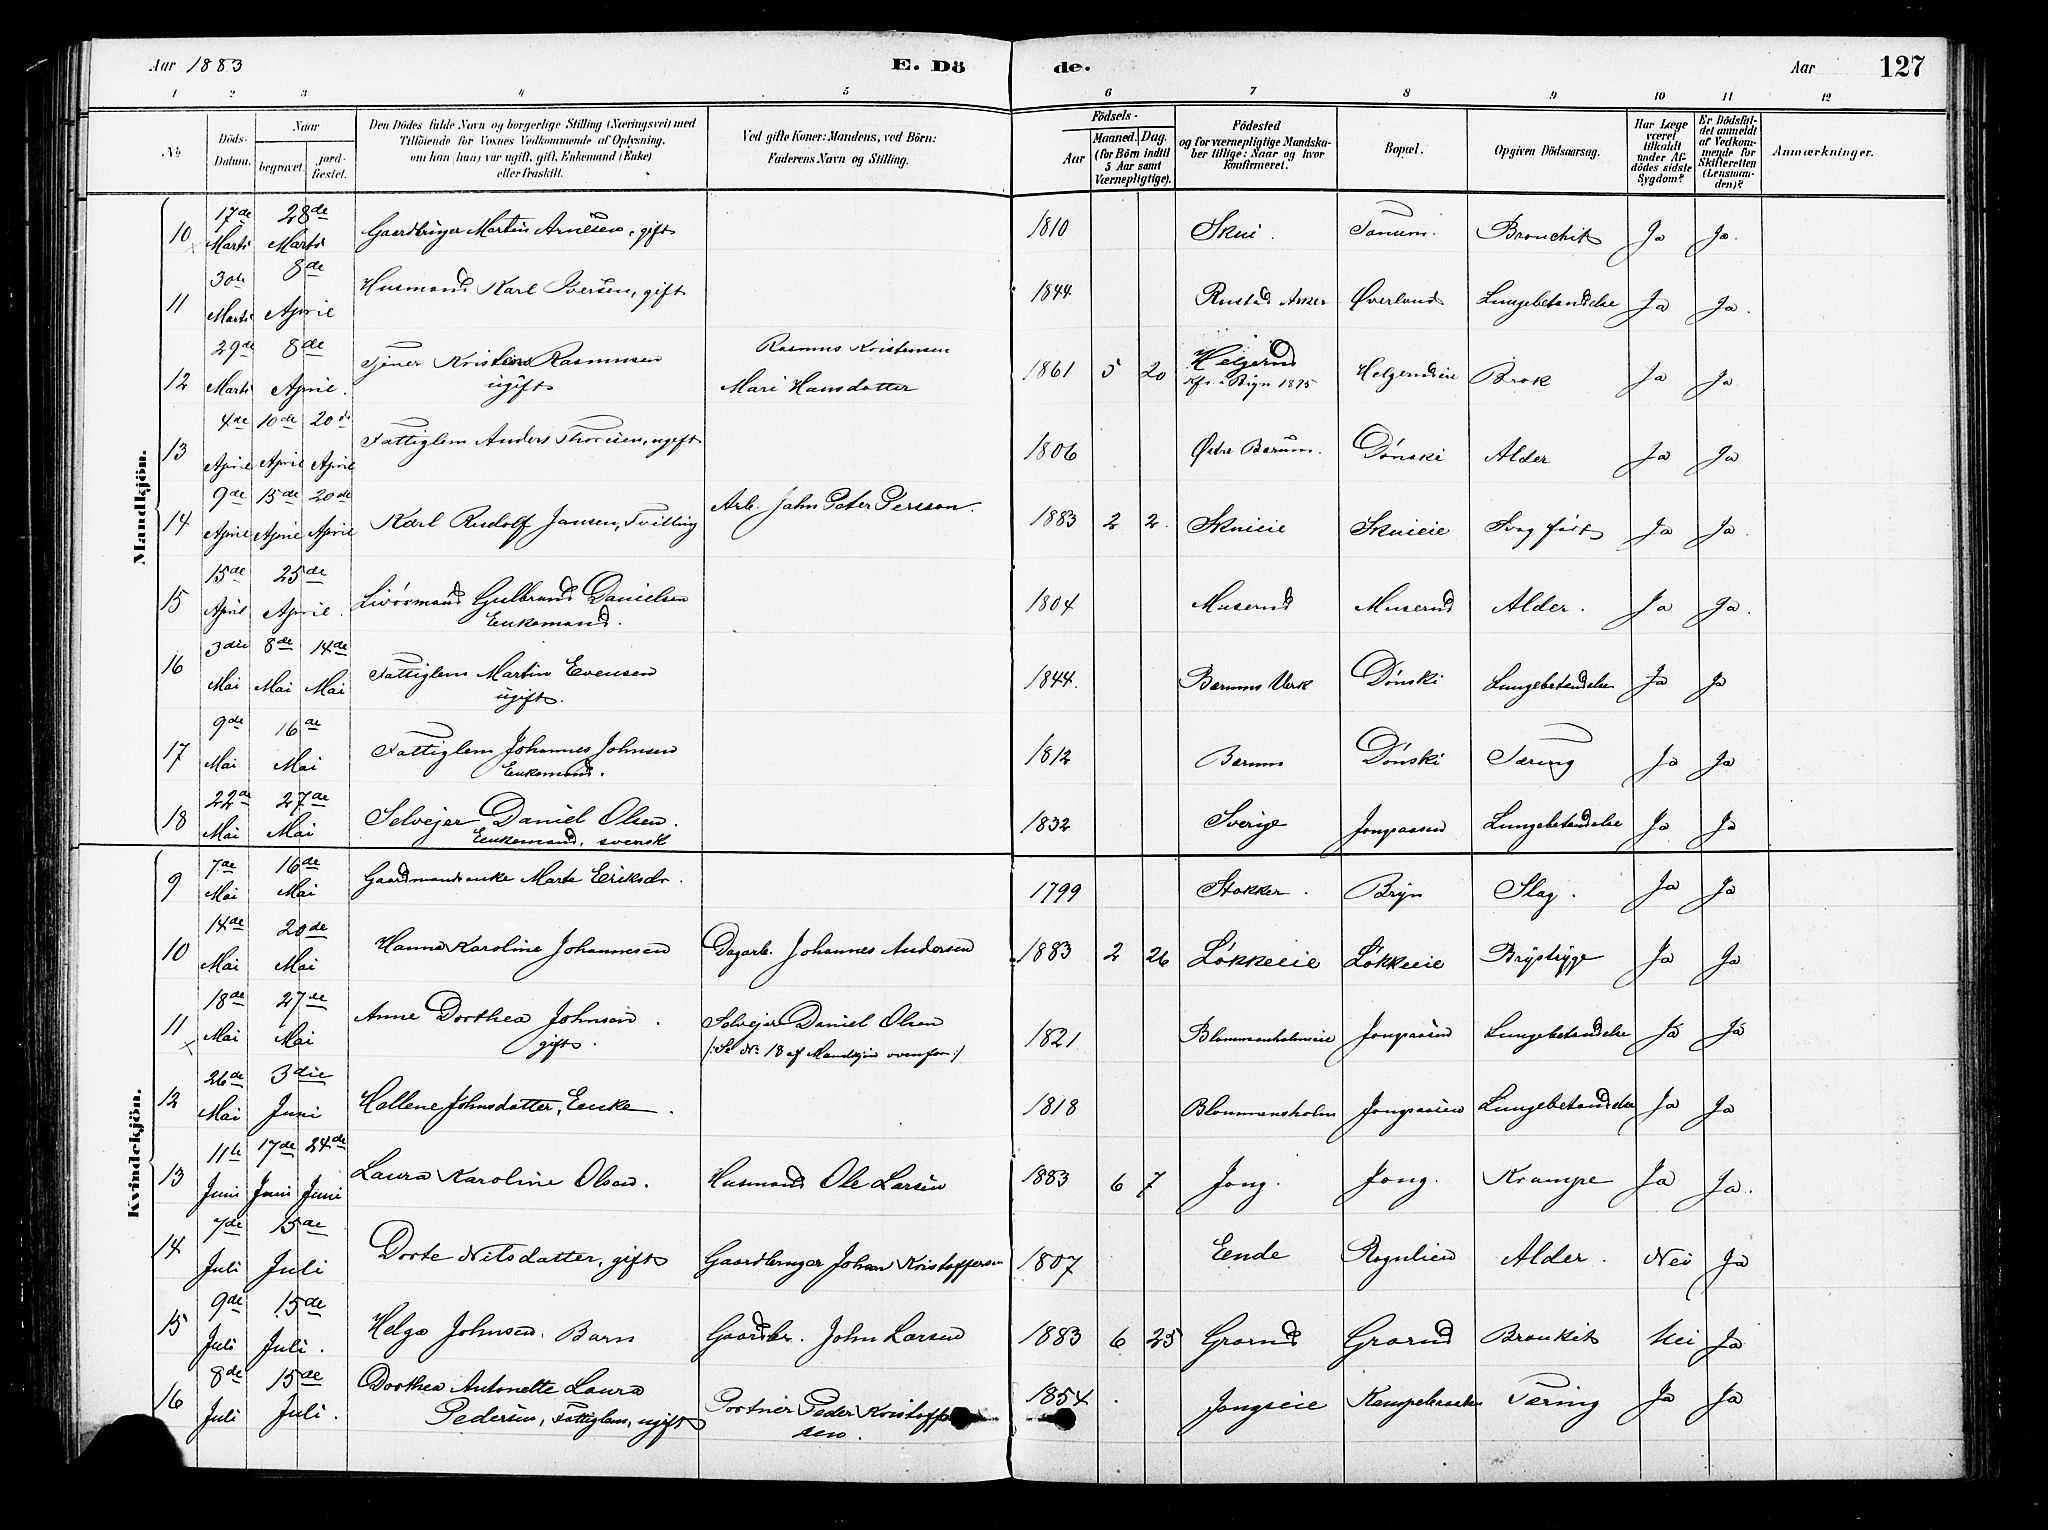 Aar 1883 E. Dö de. Aar 127
1 2 3 4 5 6 7 8 9 10 11 12
No Döds-Datum. Naar begravet. jord-fæstet. Den Dödes fulde Navn og borgerlige Stilling (Næringsvei) med Tilföiende for Voxnes Vedkommende af Oplysning, om han (hun) var ugift, gift, Enkemand (Enke) eller fraskilt. Ved gifte Koner: Mandens, ved Börn: Faderens Navn og Stilling. Födsels- Aar Maaned. Dag. (for Börn indtil 5 Aar samt Værnepligtige). Födested og for værnepligtige Mandskaber tillige: Naar og hvor konfirmeret. Bopæl. Opgiven Dödsaarsag. Har Læge været tilkaldt under Afdödes sidste Sygdom? Er Dödsfaldet anmeldt af Vedkommende for Skifteretten (Lensmanden)? Anmærkninger.
Mandkjön.
10 17de Marts 28de Marts Gaardbruger Martin Arnesen, gift 1810 Skui. Tanum. Bronchit Ja Ja.
11 30te Marts 8de April Husmand Karl Iversen, gift 1844 Rustad Asker Øverland Lungebetændelse Ja Ja.
12 29de Marts 8de April. Tjener Kristian Rasmusen ugift Rasmus Kristensen Mari Hansdatter 1861 5 20 Helgerud Kfr. i Bryn 1875 Helgerudeie Brok Ja Ja
13 4de April 10de April 20de April Fattiglem Anders Thoresen, ugift 1806 Østre Bærum. Dønski Alder Ja Ja
14 9de April 15de April 20de April Karl Rudolf Jansen, Tvilling Arb. Jahn Peter Persson. 1883 2 2. Skuieie Skuieie Svag født Ja Ja.
15 15de April 25de April. Livørmand Gulbrand Danielsen Enkemand. 1804 Muserud Muserud Alder. Ja Ja.
16 3die Mai 8de Mai 14de Mai Fattiglem Martin Evensen ugift. 1844. Bærums Verk Dønski Lungebetændelse Ja Ja
17 9de Mai 16de Mai Fattiglem Johannes Johnsen Enkemand. 1812 Bærum Dønski Tæring Ja Ja
18 22de Mai 27de Mai Selvejer Daniel Olsen. Enkemand, svensk 1832 Sverige Jongsaasen Lungebetændelse Ja Ja
Kvindekjön.
9 7de Mai 16de Mai Gaardmandsenke Marte Eriksdr. 1799 Stokker. Bryn Slag. Ja Ja
10 14de Mai 20de Mai Hanna Karoline Johannesen Dagarb. Johannes Andersen 1883 2 26 Løkkeeie Løkkeeie Brystsyge Ja Ja
11 18de Mai 27de Mai Anne Dorthea Johnsen. gift. Selvejer Daniel Olsen /:Se No 18 af Mandkjøn ovenfor:/ 1821 Blommenholmeie Jongsaasen Lungebetændelse Ja Ja
12 26de Mai 3die Juni Hellene Johnsdatter, Enke. 1818 Blommensholm Jongsaasen Lungebetændelse Ja Ja
13 11te Juni 17de Juni 24de Juni Laura Karoline Olsen. Husmand Ole Larsen 1883 6 7 Jong. Jong. Krampe Ja Ja.
14 7de Juli 15de Juli Dorte Nilsdatter, gift Gaardbruger Johan Kristoffersen 1807 Eende Alder. Nei Ja
15 9de Juli 15de Juli. Helga Johnsen. Barn Gaardbr. John Larsen 1883 6 25 Grorud Grorud Bronkit Nei Ja
16 8de Juli 15de Juli. Dorthea Antonette Laura Pedersen, Fattiglem, ugift Portner Peder Kristoffersen. 1854. Jongseie Kampebraaten Tæring Ja Ja